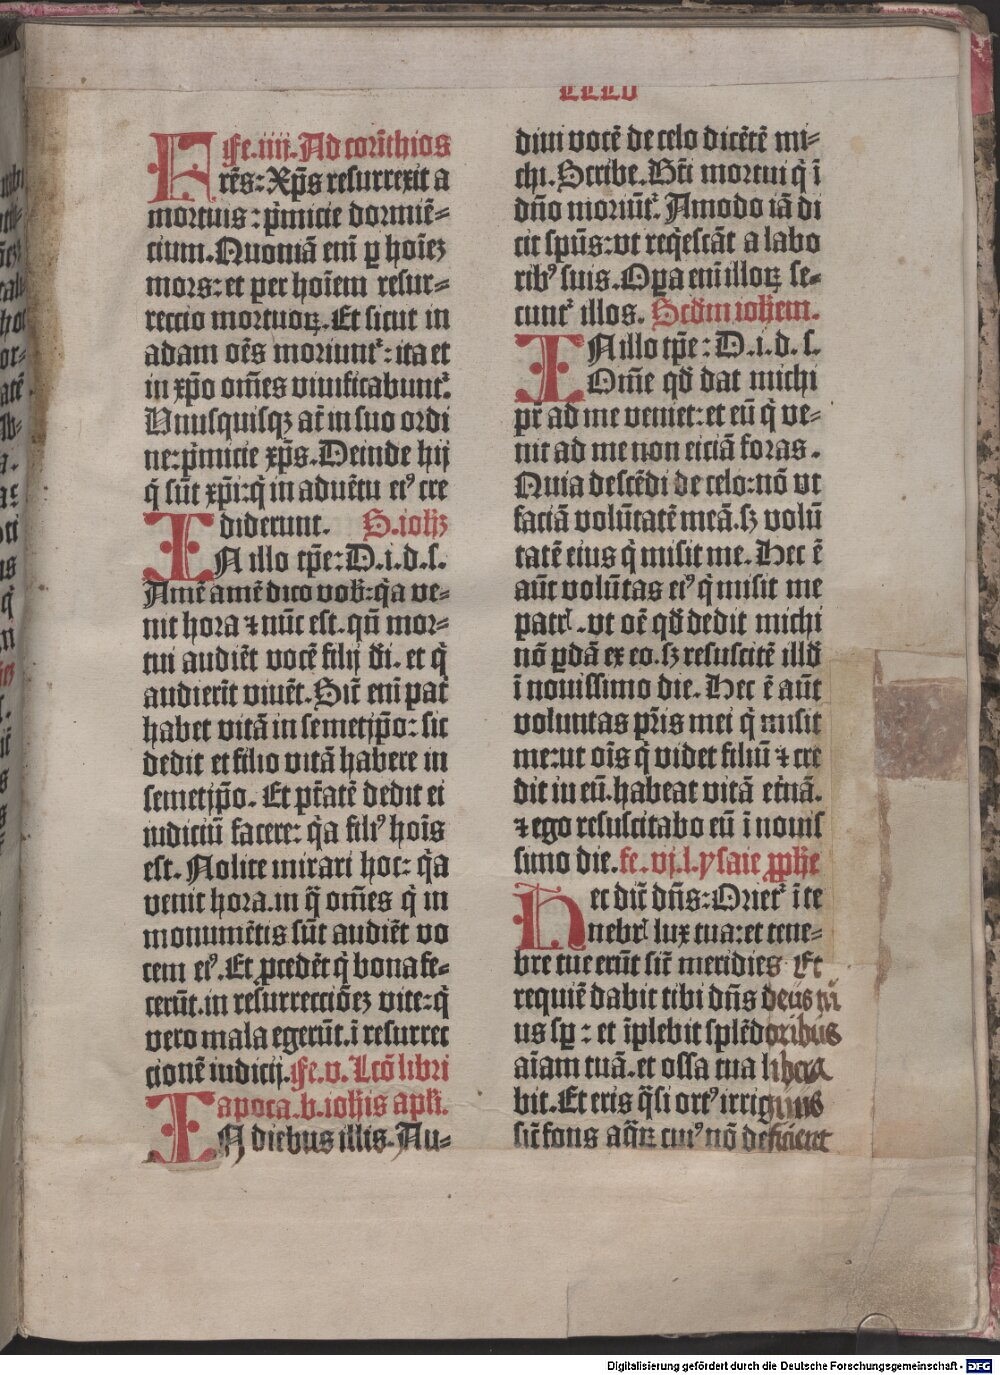 Fe. iiij. Ad corīthios
FRēs: Xp̄s resurrexit a
mortuis: p̄micie dormiē⸗
cium. Quoniā eni̅ ꝑ hoīeꝫ
mors: et per hoīem resur⸗
reccio mortuoꝝ. Et sicut in
adam oēs moriunt᷑: ita et
in xp̄o om̄es viuificabunt᷑.
Vnusquisqꝫ at̄ in suo ordi
ne: p̄micie xp̄s. Deinde hij
q̇ sūt xp̄i: q̇ in aduētu eiꝰ cre
diderunt. S. ioħꝫ
IN illo tp̄e: D. i. d. s.
Amē amē dico vob̄: q̇a ve⸗
nit hora ⁊ nūc est. qn̄ mor⸗
tui audiēt vocē filij di̅. et q̇
audierīt viuēt. Sic̄ eni̅ pat̄
habet vitā in semetip̄o: sic
dedit et filio vitā habere in
semetip̄o. Et pt̄atē dedit ei
iudiciū facere: q̇a filiꝰ hoīs
est. Nolite mirari hoc: q̇a
venit hora. in q̄ om̄es q̇ in
monumētis sūt audiēt vo
cem eiꝰ. Et ꝓcedēt q̇ bona fe⸗
cerūt. in resurrecciōeꝫ vite: q̇
vero mala egerūt. ī resurrec
cionē iudicij. Fe. v. Lcō libri
apoca. b. ioħis apl̄i.
IN diebus illis. Au⸗
CCCV
diui vocē de celo dicētē mi⸗
chi. Scribe. Bt̄i mortui q̇ ī
dn̄o moriūt᷑. Amodo iā di
cit sp̄us: vt reqͥescāt a labo
ribꝰ suis. Oꝑa eni̅ illoꝝ se⸗
cunt᷑ illos. Scd̄m ioħem.
IN illo tp̄e: D. i. d. s.
Om̄e qd̄ dat michi
pr̄ ad me veniet: et eū q̇ ve⸗
nit ad me non eiciā foras.
Quia descēdi de celo: nō vt
faciā volūtatē meā. sꝫ volū
tatē eius q̇ misit me. Hec ē
aūt volūtas eiꝰ q̇ misit me
patrꝭ. vt oē qd̄ dedit michi
nō ꝑdā ex eo. sꝫ resuscitē illd̄
ī nouissimo die. Hec ē aūt
voluntas pr̄is mei q̇ misit
me: ut oīs q̇ videt filiū ⁊ cre
dit in eū. habeat vitā et̄nā.
⁊ ego resuscitabo eū ī nouis
simo die. fe. vj. l. ysaie ꝓpħe
Hec dic̄ dn̄s: Oriet᷑ ī te
nebrꝭ lux tua: et tene⸗
bre tue erūt sic̄ meridies Et
requiē dabit tibi dn̄s deus tu̅
us sp̄: et īplebit splēdoribus
aīam tuā. et ossa tua libera
bit. Et eris q̄si ortꝰ irriguus
sic̄ fons aq̄ꝝ cuiꝰ nō deficient
Digitalisierung gefördert durch die Deutsche Forschungsgemeinschaft - DFG